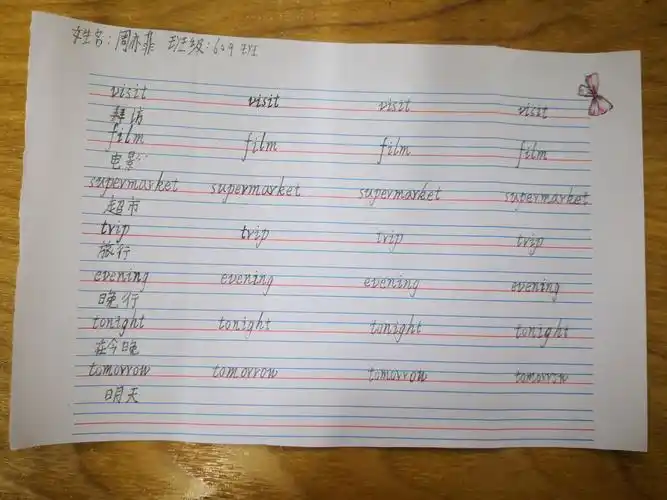 姓名：周亦菲 班级：609班
visit visit visit visit
拜访
film film film film
电影
supermarket supermarket supermarket supermarket
超市
trip trip trip trip
旅行
evening evening evening evening
晚行
tonight tonight tonight tonight
在今晚
tomorrow tomorrow tomorrow tomorrow
明天